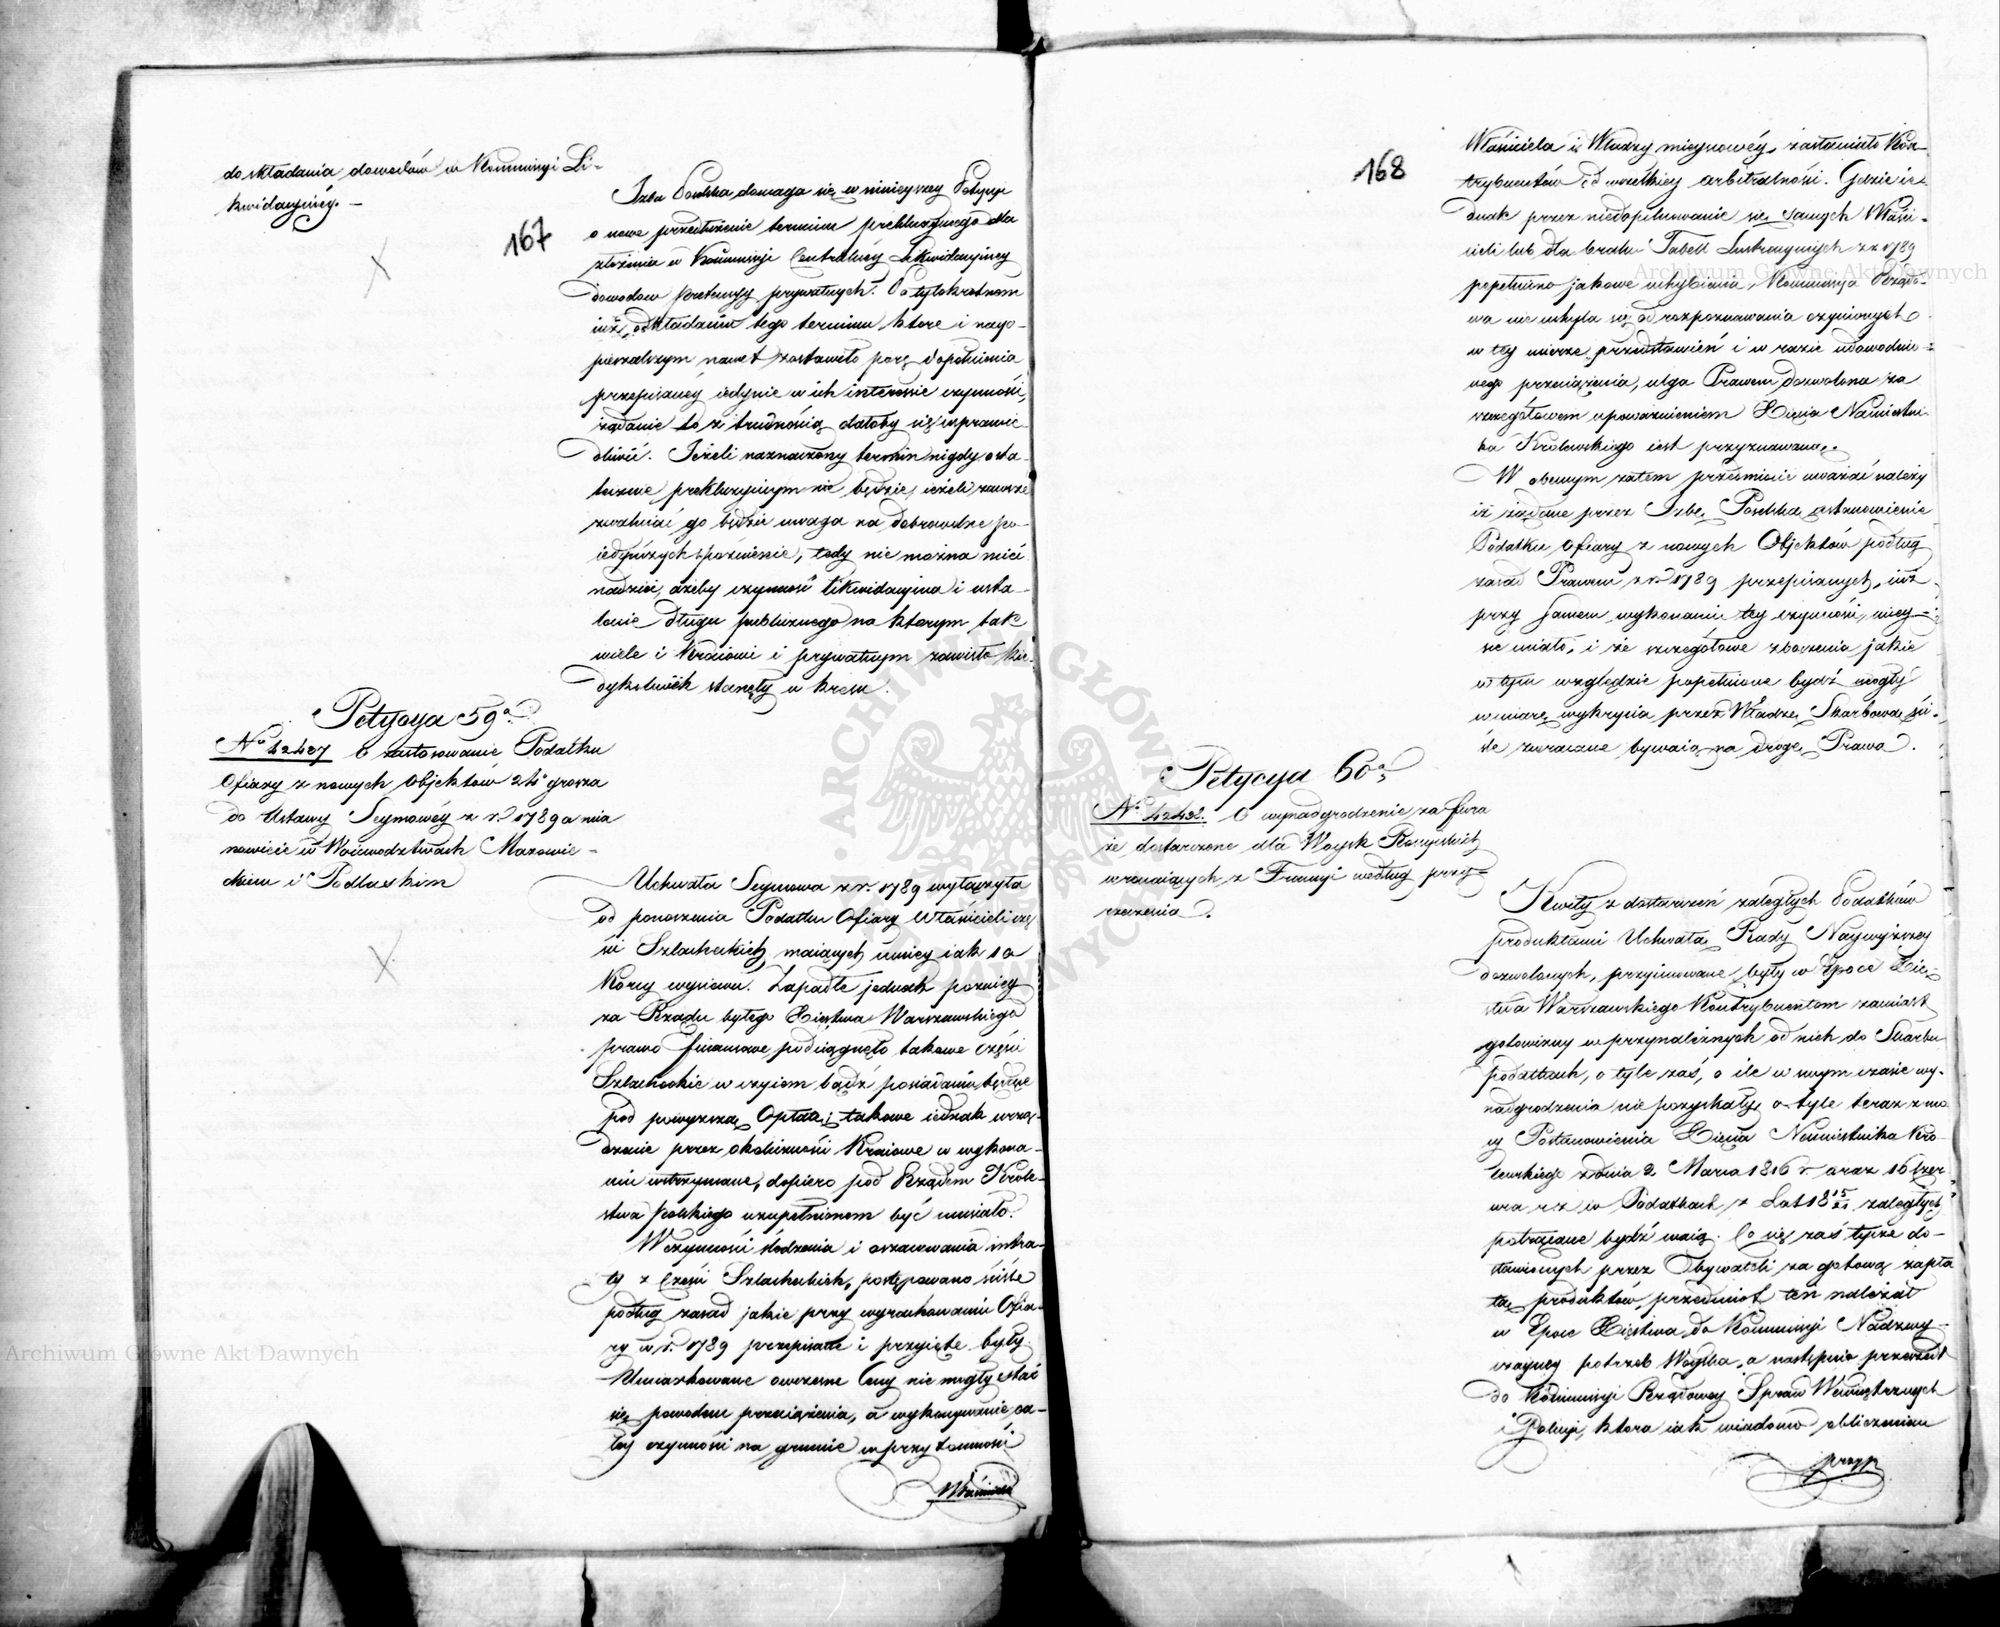 do składania dowodów w Kommissyi Li-
kwidacyiney. —
167
Izba Poselska domaga się w ninieyszey Petycyi
o nowe przedłużenie terminu prekluzyinego dla
złożenia w Kommissyi Centralney Likwidacyiney
dowodów pretensyy prywatnych. Po tylokrotnem
iuż odkładaniu tego terminu, które i nayo-
pieszalszym nawet zostawiło porę dopełnienia
przepisaney iedynie w ich interessie czynności,
żądanie to z trudnością dałoby się usprawie-
dliwić. Jeżeli naznaczony termin nigdy osta-
tecznie prekluzyinym nie będzie, ieżeli zawsze
zwalniać go będzie uwaga na dobrowolne po-
iedynczych spóźnienie, tedy nie można mieć
nadziei, ażeby czynność likwidacyina i usta-
lenie długu publicznego na którym tak
wiele i Kraiowi i prywatnym zawisło kie-
dykolwiek stanęły u kresu.
Petycya 59a
No 42487 O zastosowanie Podatku
Ofiary z nowych Objektów 24o grosza
do Ustawy Seymowéy z r. 1789 a mia
nowicie w Województwach Mazowiec-
kiem i Podlaskim
Uchwała Seymowa z r. 1789 wyłączyła
od ponoszenia Podatku Ofiary Właścicieli czę
ści Szlacheckich maiących mniey iak 10
Korcy wysiewu. Zapadłe jednak pozniey
za Rządu byłego Xięstwa Warszawskiego
prawo finansowe podciągnęło takowe części
Szlacheckie w czyiem bądź posiadaniu będące
pod powyższą Opłatę; takowe iednak urzą-
dzenie przez okoliczności Kraiowe w wykona-
niu wstrzymane, dopiero pod Rządem Króle-
stwa Polskiego uzupełnionem być musiało.
W czynności śledzenia i oszacowania intra-
ty z Części Szlacheckich, postępowano ściśle
podług zasad jakie przy wyrachowaniu Ofia-
ry w r. 1789 przepisane i przyięte były.
Umiarkowane owczesne Ceny nie mogły stać
się powodem przeciążenia, a wykonywanie ca-
łey czynności na gruncie w przytomności
Właściciela
168
Właściciela i Władzy mieyscowéy, zasłaniało Kon-
trybuentów od wszelkiey arbitralności. Gdzie ie-
dnak przez niedopilnowanie się samych Właści-
cieli lub dla braku Tabell Lustracyinych z r. 1789
popełniono jakowe uchybienia, Kommissya Rządo-
wa nie uchyla się od rozpoznawania czynionych
w tey mierze przedstawień i w razie udowodnio-
nego przeciążenia, ulga Prawem dozwolona za
szczegółowem upoważnieniem Xięcia Namiestni-
ka Królewskiego iest przyznawana.
W obecnym zatem przedmiocie uważać należy
iż żądane przez Izbę Poselską ustanowienie
Podatku Ofiary z nowych Objektów podług
zasad Prawem z r. 1789 przepisanych, iuż
przy samem wykonaniu tey czynności miey-
sce miało, i że szczegółowe zboczenia jakie
w tym względzie popełnione bydź mogły
w miarę wykrycia przez Władze Skarbowe, ści-
śle zwracane bywaią na drogę Prawa.
Petycya 60a
No 42492. O wynadgrodzenie za fura
że dostarczone dla Woysk Rossyiskich
wracaiących z Francyi według przy-
rzeczenia.
Kwity z dostarczeń zaległych Podatków
produktami Uchwałą Rady Naywyższey
dozwolonych, przyimowane były w Epoce Xię-
stwa Warszawskiego Kontrybuentom zamiast
gotowizny w przynależnych od nich do Skarbu
podatkach, o tyle zaś, o ile w swym czasie wy-
nadgrodzenia nie pozyskały, o tyle teraz z mo
cy Postanowienia Xięcia Namiestnika Kró-
lewskiego z dnia 2 Marca 1816 r. oraz 16 Czer
wca r. z. w Podatkach z Lat 1815/21 zaległych
potrącane bydź maią. Co się zaś tycze do-
stawionych przez Obywateli za gotową zapła
tą produktów, przedmiot ten należał
w Epoce Xięstwa do Kommissyi Nadzwy-
czayney potrzeb Woyska, a następnie przeszedł
do Kommissyi Rządowey Spraw Wewnętrznych
i Policyi, która iak wiadomo obliczeniem
przyp
Archiwum Główne Akt Dawnych
Archiwum Główne Akt Dawnych
ARCHIWUM GŁÓWNE AKT DAWNYCH